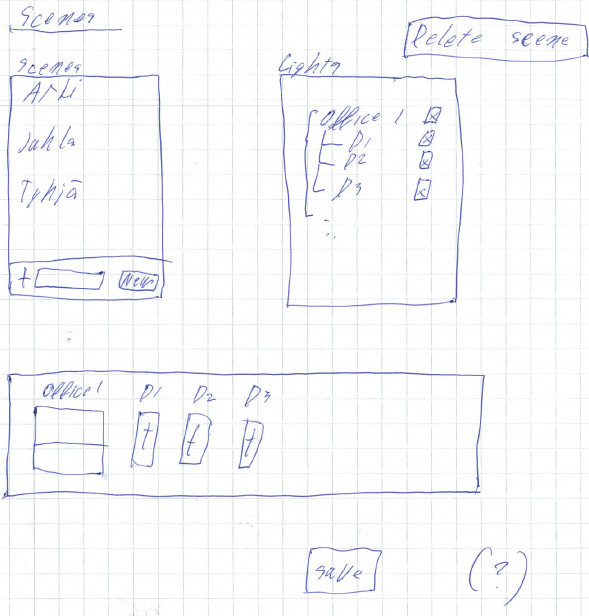 Scenes
Delete scene
Scenes
Lights
Arki
Juhla
Tyhjä
+ New
Office 1
D1
D2
D3
Office 1 D1 D2 D3
save (?)